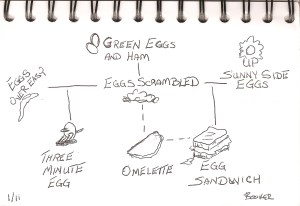 GREEN EGGS
AND HAM
EGGS
OVER EASY
EGGS SCRAMBLED
UP
SUNNY SIDE
EGGS
THREE
MINUTE
EGG
OMELETTE
EGG
SANDWICH
BOOKER
1/11